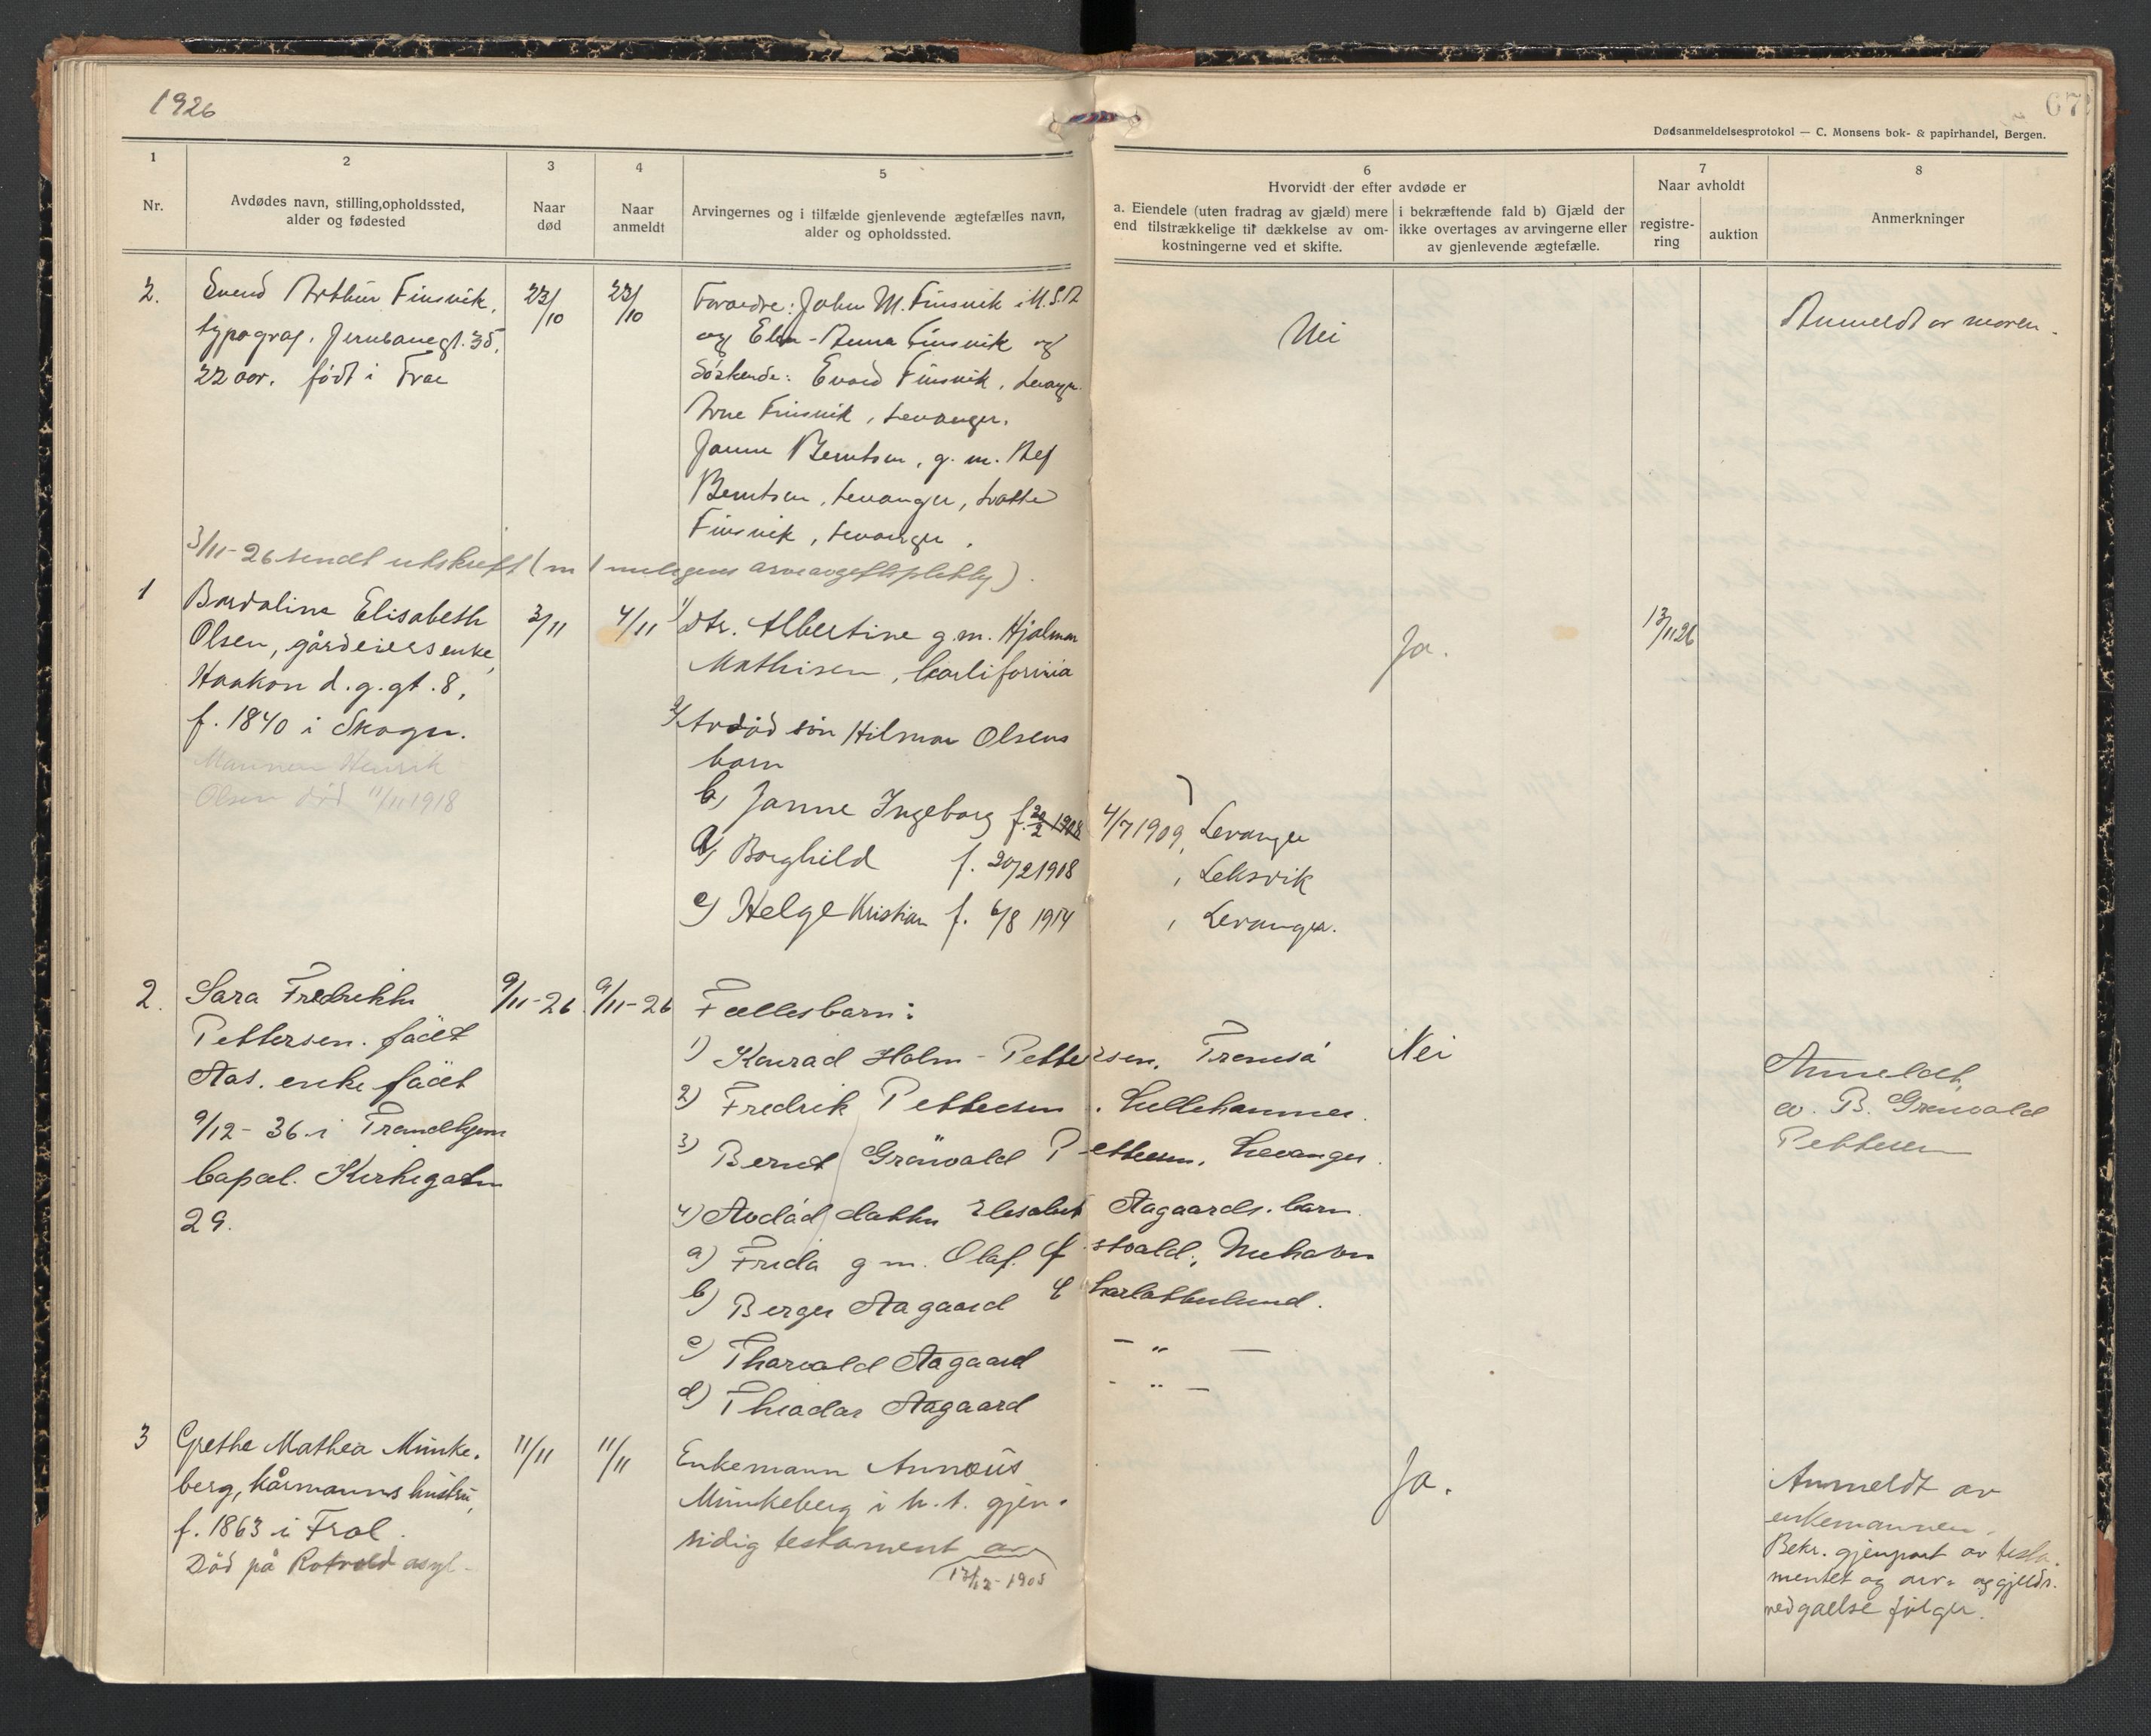 1926
67
Dødsanmeldelsesprotokol — C. Monsens bok- & papirhandel, Bergen.
1
Nr.
2
Avdødes navn, stilling, opholdssted,
alder og fødested
3
Naar
død
4
Naar
anmeldt
5
Arvingernes og i tilfælde gjenlevende ægtefælles navn,
alder og opholdssted.
6
Hvorvidt der efter avdøde er
a. Eiendele (uten fradrag av gjæld) mere
end tilstrækkelige til dækkelse av om-
kostningerne ved et skifte.
i bekræftende fald b) Gjæld der
ikke overtages av arvingerne eller
av gjenlevende ægtefælle.
7
Naar avholdt
registre-
ring
auktion
8
Anmerkninger
2.
Svend Arthur Finsvik,
typograf, Jernbanegt. 35,
22 aar. født i
23/10
23/10
Foraedre: John M. Finsvik i U.S.A
og - Anna Finsvik og
Søskende: Finsvik, Levanger
Arne Finsvik, Levanger.
Berntsen, g. m.
Berntsen, Levanger,
Finsvik, Levanger.
Nei
Anmeldt av moren.
3/11-26 sendt utskrift (m
1
Elisabeth
Olsen, gårdeiersenke,
Haakon d. g. gt. 8,
f. 1840 i Skogn.
Mannen Henrik
Olsen død 11/11 1918
3/11
4/11
1/ dtr. Albertine g.m. Hjalmar
Mathisen, California
2/ Avdød søn Hilmar Olsens
barn
b, Janne Ingeborg f. 20/2 1908 4/7 1909, Levanger
a, Borghild f. 20/2 1908 , Leksvik
c, Helge Kristian f. 6/8 1914 , Levanger.
Ja.
13/11 26
2.
Sara Fredrikke
Pettersen. født
Aas. enke født
9/12-36 i Trondhjem
bopæl. Kirkegaten
29.
9/11-26
9/11-26
Fællesbarn:
1) Konrad Holm-Pettersen, Tromsø
2) Fredrik Pettersen. Lillehammer.
3) Bernt Grønvold Pettersen. Levanger.
4) Avdød datter Elisabet Aagaards. barn.
a) Frida g m. Olaf
b) Birger Aagaard Charlottenlund.
c) Thorvald Aagaard — " —
d) Theodor Aagaard - " —
Nei
Anmeldt
av. B. Grønvold
Pettersen
3
Grethe Mathea Munke-
berg, kårmanns hustru,
f. 1863 i Frol.
Død på Rotvold asyl.
11/11
11/11
Enkemann
Munkeberg i h. t. gjen-
sidig testament av
13/12-1905
Ja.
Anmeldt av
enkemannen.
Bekr. gjenpart av testa-
mentet og arv- og gjelds-
vedgaelse følger.